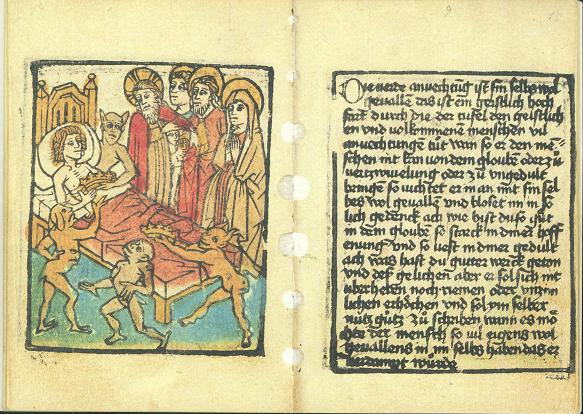 Die vierde anvechtūg ist sin selbs wol
gevallē das ist ein geistlich hoch
fart durch die der tüfel den geistlich
en vnd volkommene menschen vil
anvechtunge tůt wan so er den me
schen mit kan von dem gloubē oder zů
vertzwivelung oder zů vngedult
bringē so vichtet er man mit sin sel
bes wol gevallē vnd bloset im in so
lich gedenck ach wie bist du so gůt
in dem gloube so starck in diner hoff
enung vnd so vest in diner gedult
ach was hast du gutter werck getan
vnd des gelichen aber er sol sich nit
vberheben noch riemen oder
lichen erhöchen vnd sol ym selber
nütz gůtz zů schriben wann es mö
chte der mensch so vil eigens wol
gevallens in im selbs haben das er
verdampt würde